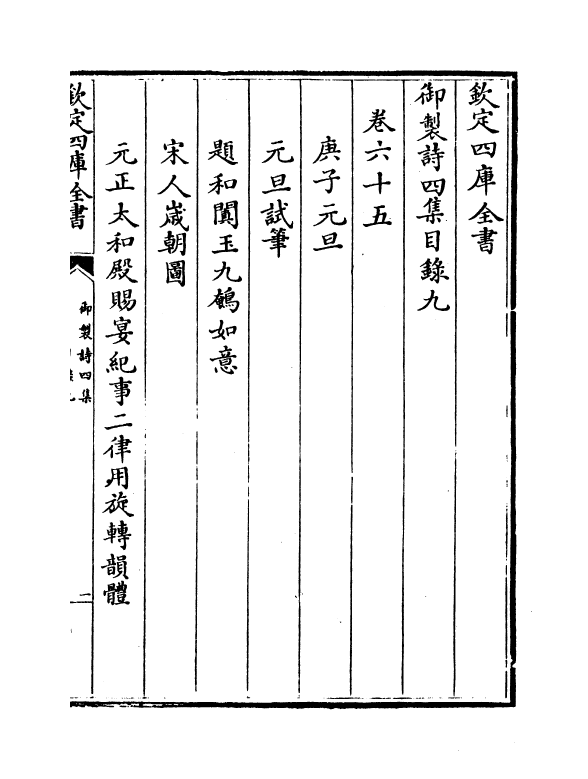 欽定四庫全書
御製詩四集目錄九
卷六十五
庚子元旦
元旦試筆
題和闐玉九鵪如意
宋人嵗朝圖
元正太和殿賜宴紀事二律用旋轉韻體
欽定四庫全書
御製詩四集
一